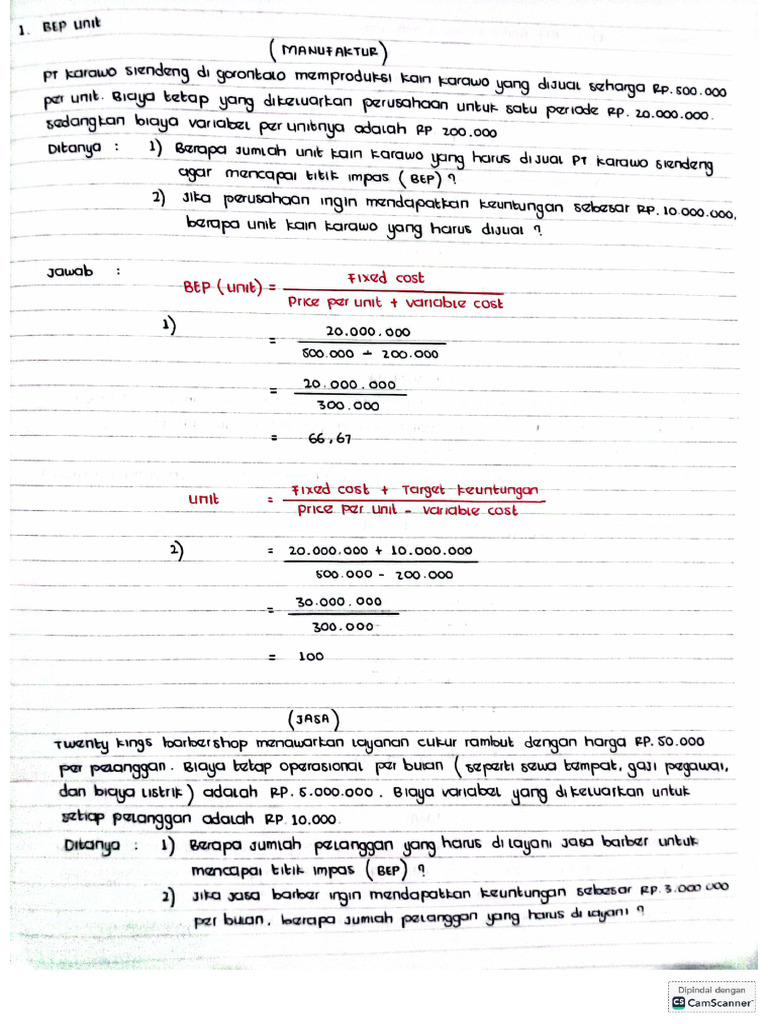 1. BEP unit
(MANUFAKTUR)
PT Karawo Siendeng di gorontalo memproduksi kain karawo yang dijual seharga RP. 500.000
per unit. Biaya tetap yang dikeluarkan perusahaan untuk satu periode RP. 20.000.000.
sedangkan biaya variabel per unitnya adalah RP 200.000
Ditanya : 1) Berapa jumlah unit kain karawo yang harus dijual PT karawo siendeng
agar mencapai titik impas (BEP) ?
2) Jika perusahaan ingin mendapatkan keuntungan sebesar RP. 10.000.000,
berapa unit kain karawo yang harus dijual ?
Jawab :
BEP (unit) = Fixed cost
Price per unit + variable cost
1)
= 20.000.000
500.000 - 200.000
= 20.000.000
300.000
= 66,67
unit = Fixed cost + Target keuntungan
price per unit - variable cost
2) = 20.000.000 + 10.000.000
500.000 - 200.000
= 30.000.000
300.000
= 100
(JASA)
Twenty kings barbershop menawarkan layanan cukur rambut dengan harga RP. 50.000
per pelanggan. Biaya tetap operasional per bulan (seperti sewa tempat, gaji pegawai,
dan biaya listrik) adalah RP. 5.000.000. Biaya variabel yang dikeluarkan untuk
setiap pelanggan adalah RP. 10.000.
Ditanya : 1) Berapa jumlah pelanggan yang harus dilayani jasa barber untuk
mencapai titik impas (BEP) ?
2) Jika jasa barber ingin mendapatkan keuntungan sebesar RP. 3.000.000
per bulan, berapa jumlah pelanggan yang harus dilayani ?
Dipindai dengan
CS CamScanner